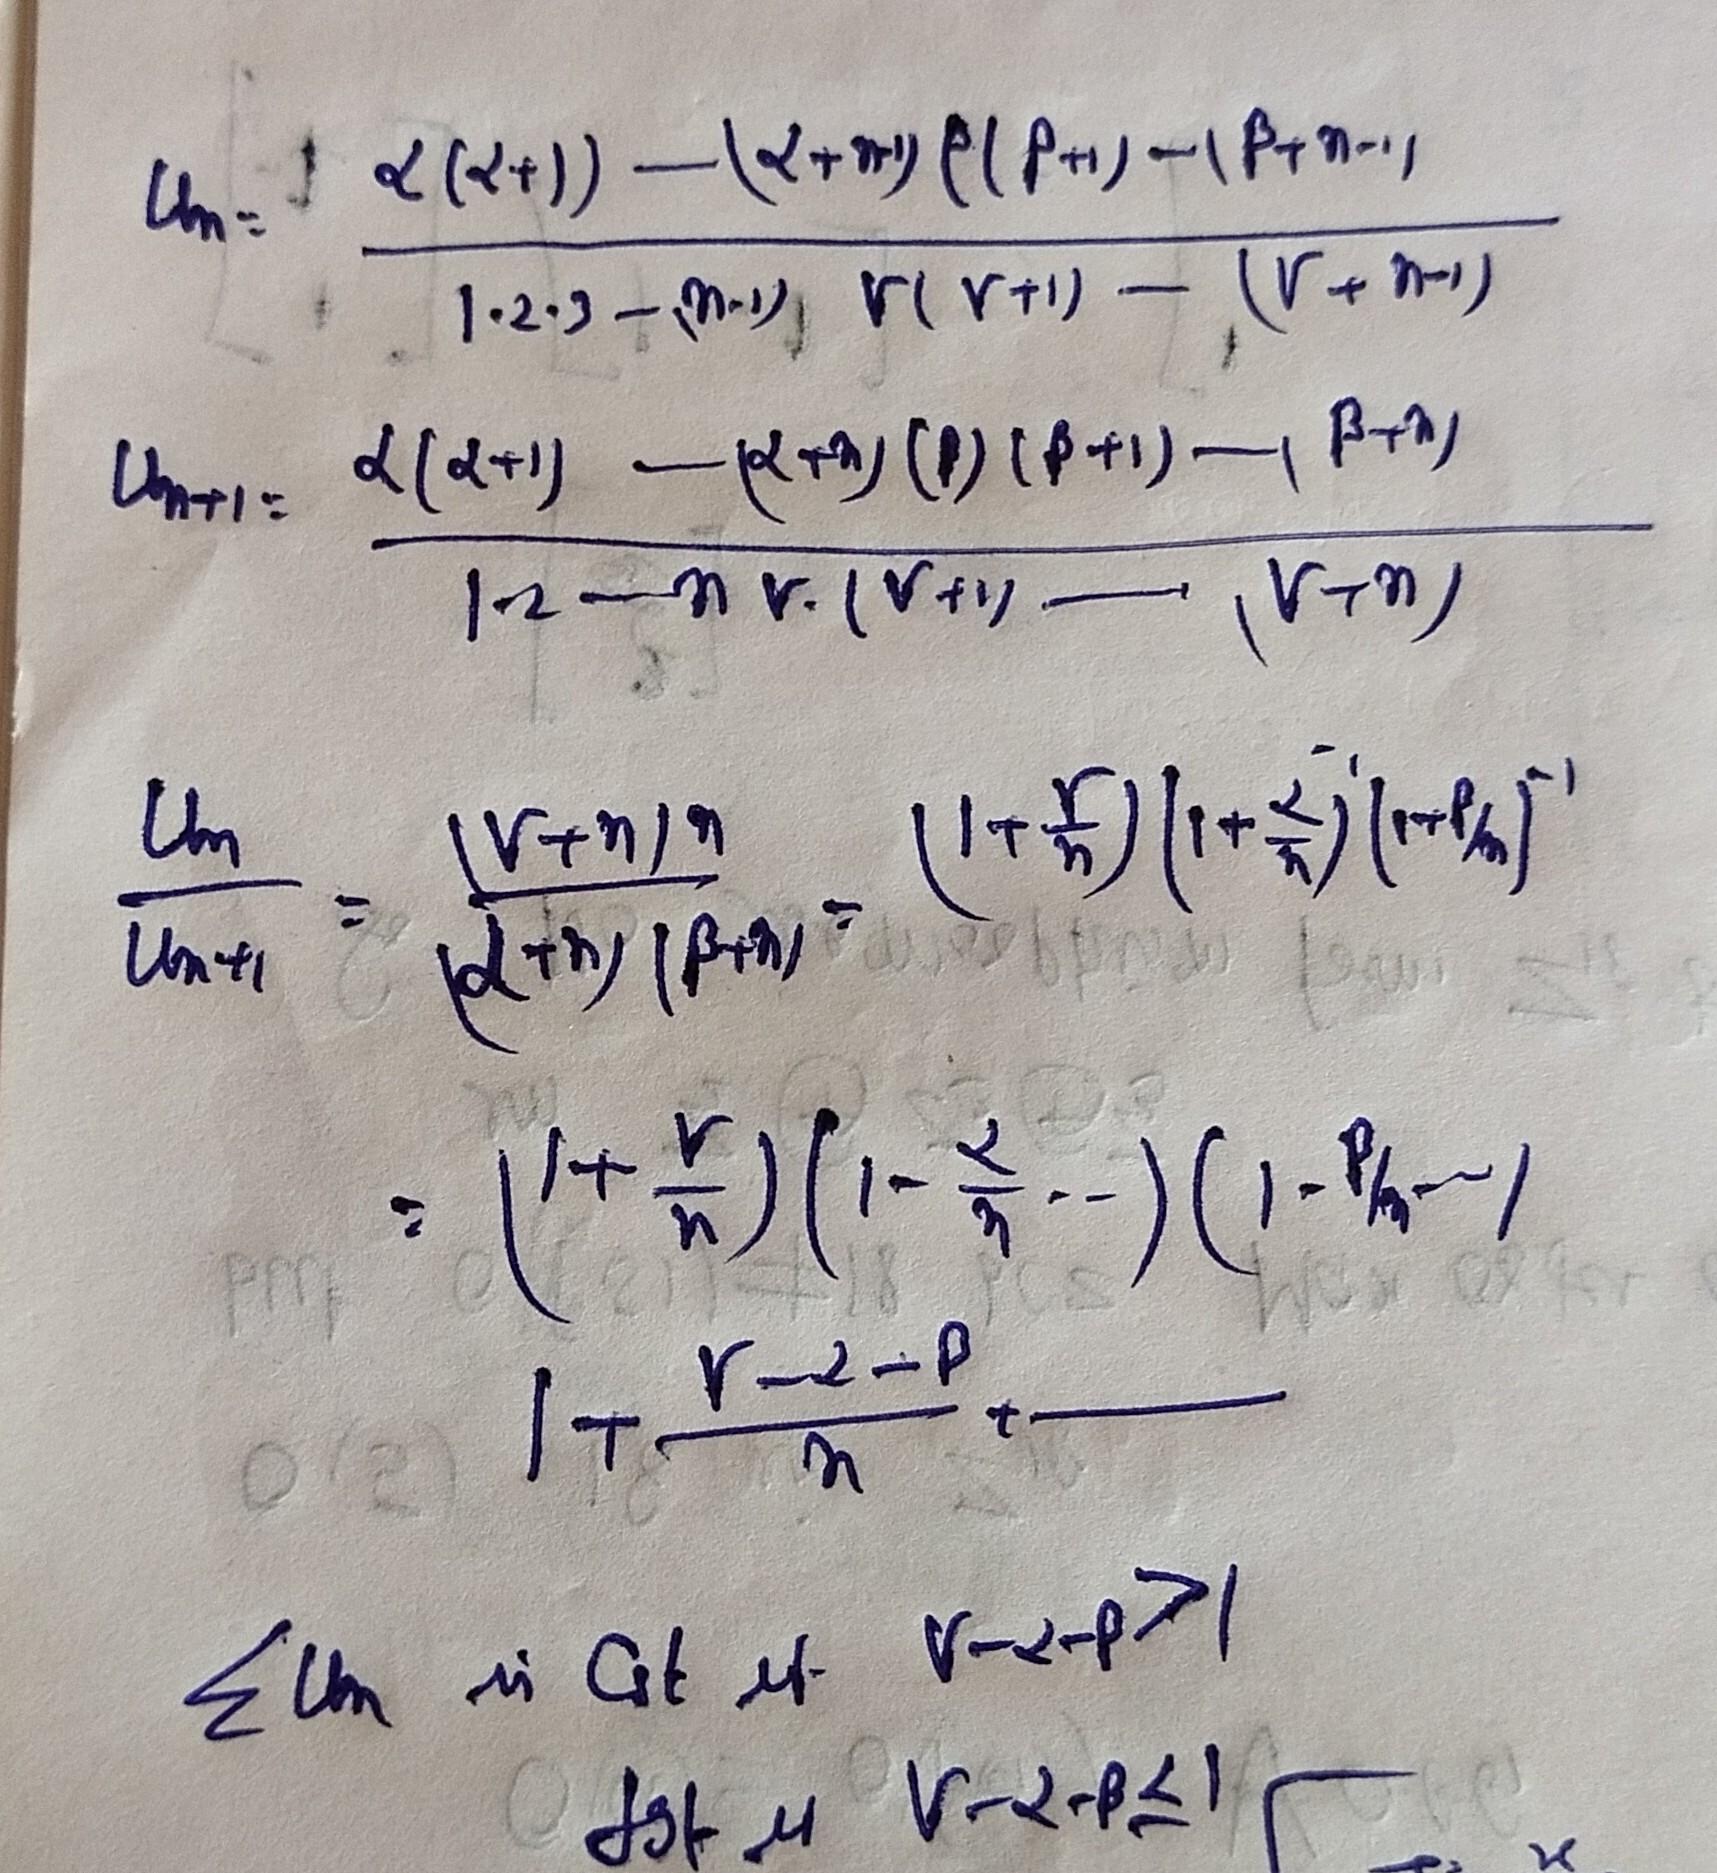 Un = α(α+1) — (α+n-1) β(β+1) — (β+n-1)
1·2·3 — (n-1) γ(γ+1) — (γ+n-1)
Un+1 = α(α+1) — (α+n) (β) (β+1) — (β+n)
1·2 — n γ·(γ+1) — (γ+n)
Un / Un+1 = (γ+n)n / (α+n)(β+n) = (1+γ/n)(1+α/n)^-1 (1+β/n)^-1
= (1+γ/n)(1-α/n --)(1-β/n --)
1 + γ-α-β / n + —
ΣUn is Cgt if γ-α-β > 1
dgt if γ-α-β ≤ 1